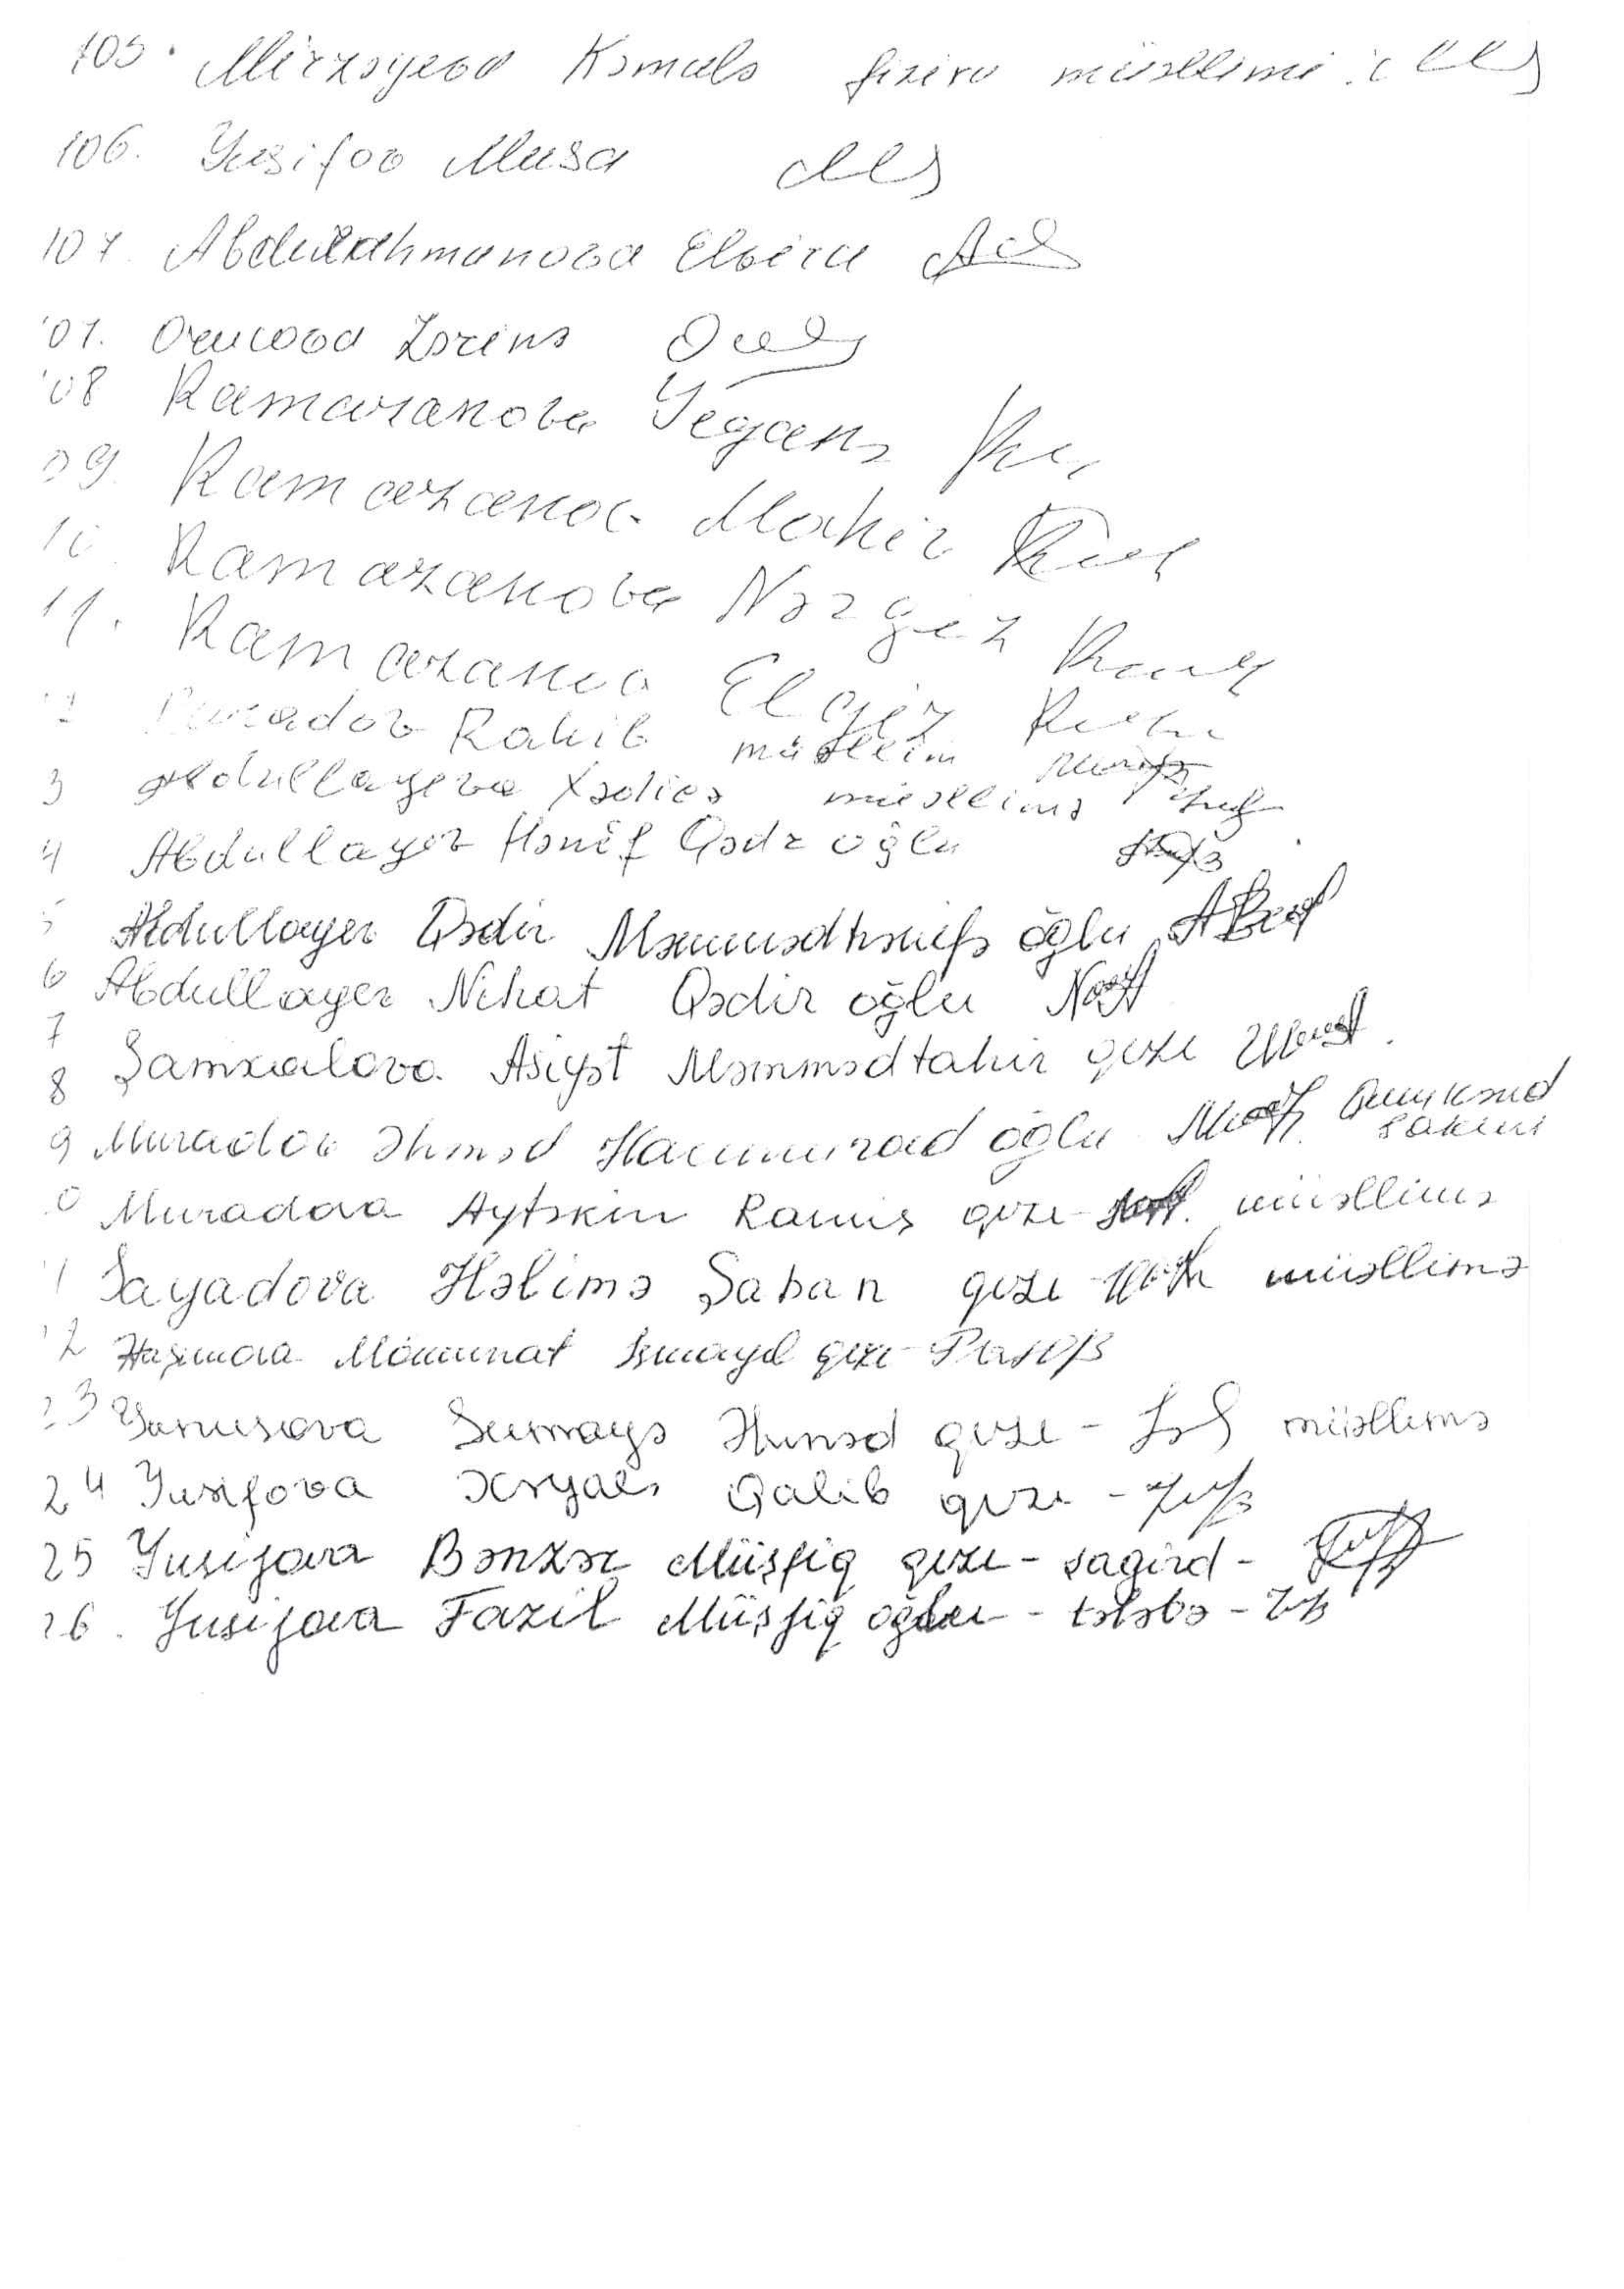 105. Mirzəyeva Kəmalə fizika müəllimi
106. Yusifov Musa
107. Abdurahmanova Elvira
07. Zərinə
08 Ramazanova Yeganə
09. Ramazanov Mahir
10. Ramazanova Nərgiz
11. Ramazanov Elgiz
2 Muradov Rahib müəllim
3 Abdullayeva Xədicə müəllimə
4 Abdullayev Hənif Qədir oğlu
5 Abdullayev Qədir Məmmədhənifə oğlu
6 Abdullayev Nihat Qədir oğlu
7
8 Şamxalova Asiyət Məmmədtahir qızı
9 Muradov Əhməd Hacımurad oğlu sakini
0 Muradova Aytəkin Ramis qızı - müəllimə
1 Sayadova Həlimə Şaban qızı - müəllimə
12 Haşımova Möminat İsmayıl qızı -
23 Yunusova Sumayə Əhməd qızı - müəllimə
24 Yusifova Xəyalə Qalib qızı -
25 Yusifova Bənzər Müşfiq qızı - şagird -
26. Yusifova Fazil Müşfiq oğlu - tələbə -